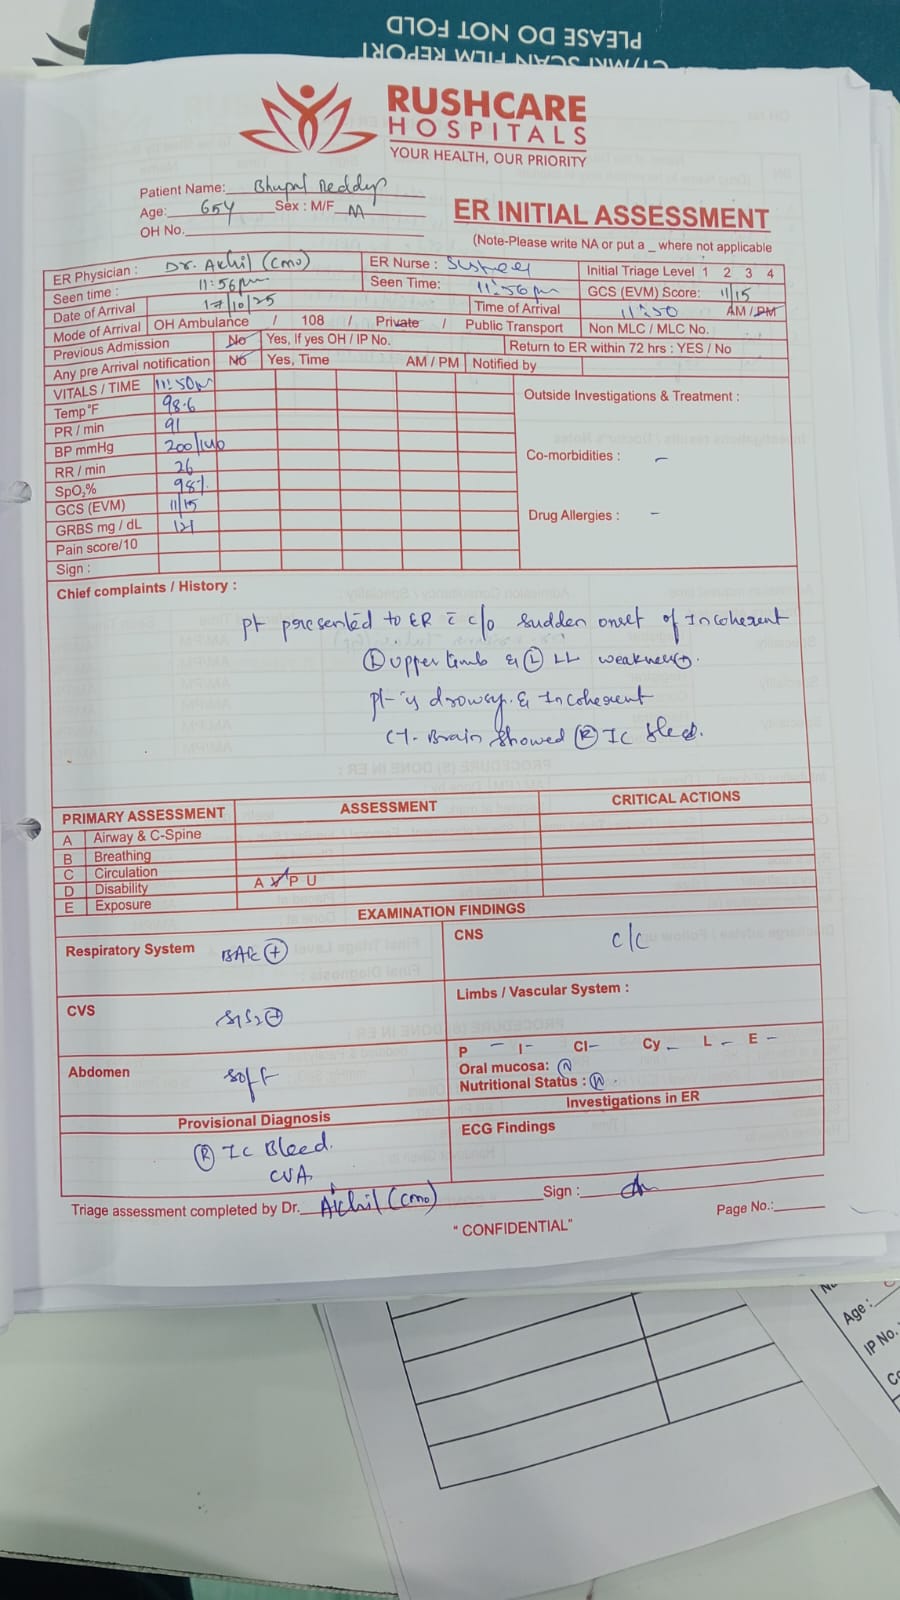 PLEASE DO NOT FOLD
CT/MRI SCAN FILM REPORT
RUSHCARE
HOSPITALS
YOUR HEALTH, OUR PRIORITY
Patient Name: Bhupal Reddy
Age: 65Y Sex : M/F M
OH No.
ER INITIAL ASSESSMENT
(Note-Please write NA or put a _ where not applicable
ER Physician : Dr. Akhil (CMO) ER Nurse : Initial Triage Level 1 2 3 4
Seen time : 11:56pm Seen Time: 11:56pm GCS (EVM) Score: 11/15
Date of Arrival 17/10/25 Time of Arrival 11:50 AM / PM
Mode of Arrival OH Ambulance / 108 / Private / Public Transport Non MLC / MLC No.
Previous Admission No Yes, If yes OH / IP No. Return to ER within 72 hrs : YES / No
Any pre Arrival notification No Yes, Time AM / PM Notified by
VITALS / TIME 11:50pm
Outside Investigations & Treatment :
Temp°F 98.6
PR / min 91
BP mmHg 200/140
Co-morbidities : -
RR / min 26
SpO₂% 98%
GCS (EVM) 11/15
Drug Allergies : -
GRBS mg / dL 121
Pain score/10
Sign :
Chief complaints / History :
pt presented to ER c̄ c/o sudden onset of Incoherent
Ⓛ upper limb & Ⓛ LL weakness.
pt is drowsy & Incoherent
CT- Brain showed Ⓡ IC bleed.
PRIMARY ASSESSMENT ASSESSMENT CRITICAL ACTIONS
A Airway & C-Spine
B Breathing
C Circulation
D Disability A V P U
E Exposure
EXAMINATION FINDINGS
Respiratory System BAE ⊕ CNS C/C
CVS S1S2 ⊕ Limbs / Vascular System :
Abdomen soft P - I- CI- Cy - L - E -
Oral mucosa: Ⓝ
Nutritional Status : Ⓝ
Provisional Diagnosis Investigations in ER
Ⓡ IC Bleed. ECG Findings
CVA
Triage assessment completed by Dr. Akhil (CMO) Sign :
Page No.:
"CONFIDENTIAL"
Age :
IP No.